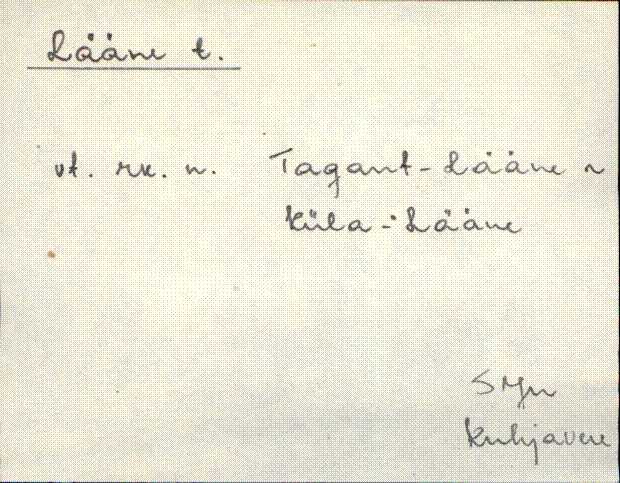 Lääne t.
vt. rk. n. Tagant-Lääne ~
Küla-Lääne
SJn
Kuhjavere